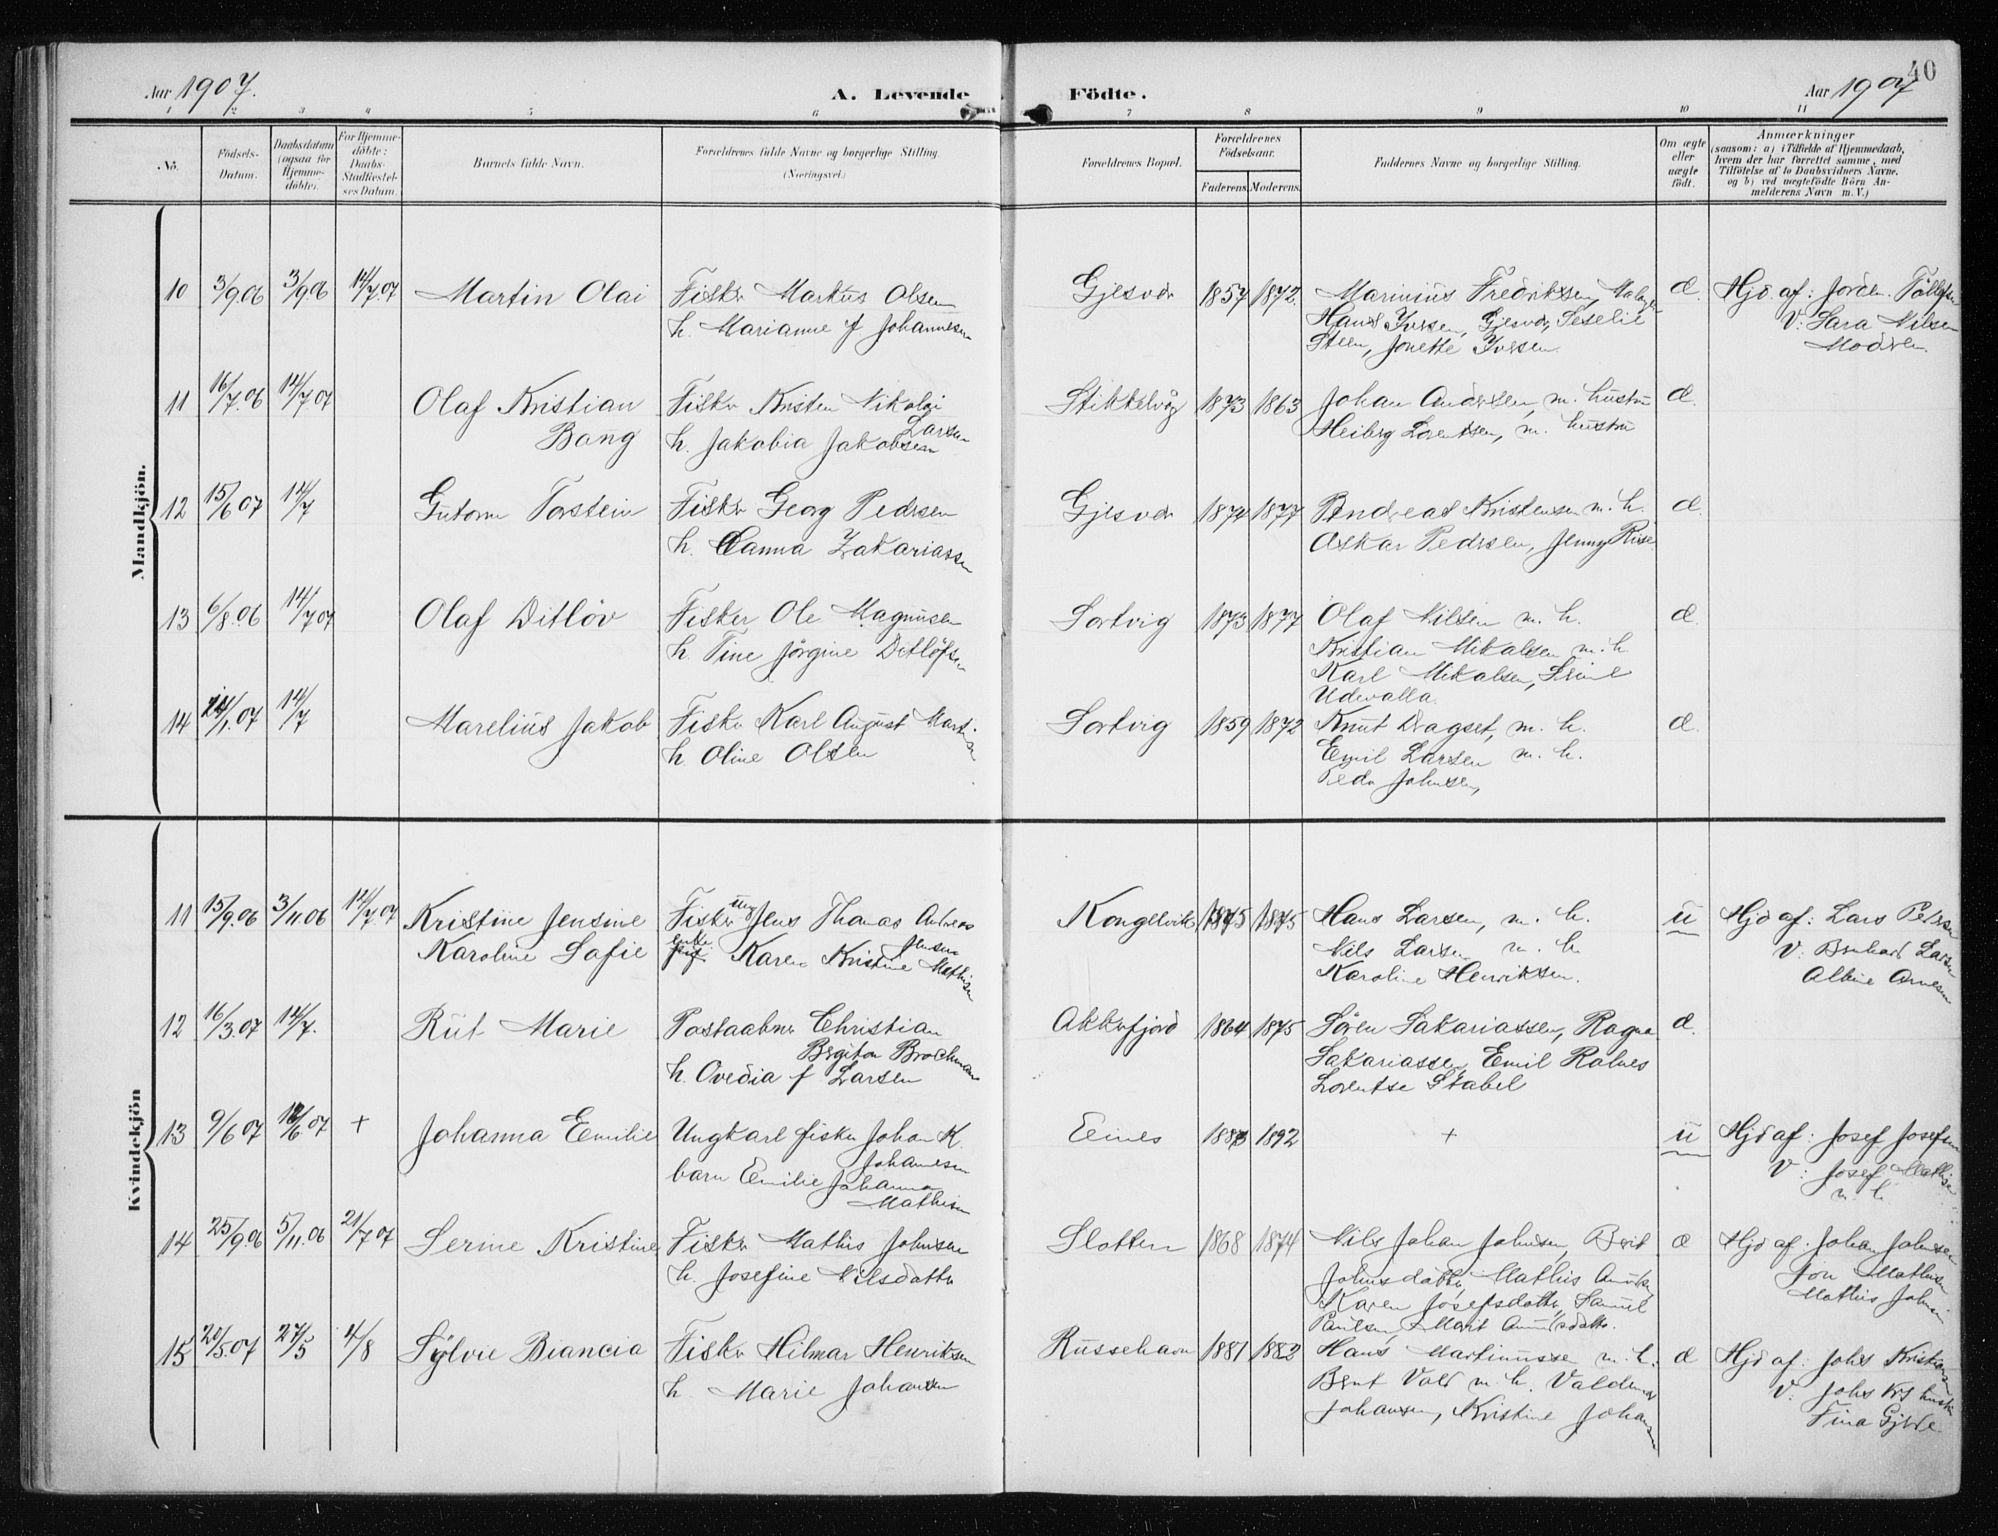 40
Aar 1907.
A. Levende Födte.
Aar 1907
1 2 3 4 5 6 7 8 9 10 11
No.
Födsels-Datum.
Daabsdatum (ogsaa for Hjemme-döbte).
For Hjemme-döbte: Daabs-Stadfæstel-ses Datum.
Barnets fulde Navn.
Forældrenes fulde Navne og borgerlige Stilling. (Næringsvei.)
Forældrenes Bopæl.
Forældrenes Födselsaar.
Faderens. Moderens.
Faddernes Navne og borgerlige Stilling.
Om ægte eller uægte födt.
Anmærkninger
(saasom: a) i Tilfælde af Hjemmedaab,
hvem der har forrettet samme, med
Tilföielse af to Daabsvidners Navne.
og b) ved uægtefödte Börn An-
melderens Navn m. V.)
Mandkjön.
10 3/9.06 3/9 06 14/7.07 Martin Olai Fisker Markus Olsen Gjesvær 1857 1872. Marinius Fredriksen, Æ. Hjd. af: Jörden.
h. Marianne f Johannesen Hans Iversen, Gjesvær, V: Sara Nilsen
Steen, Jonette Iversen. Modren.
11 16/7.06 14/7 07 Olaf Kristian Fisker Kristen Nikolai Stikkelvåg 1873 1863 Johan Andersen, m. hustru Æ.
Bang Larsen
h. Jakobia Jakobsen Heiberg Lorentsen, m. hustru
12 15/6 07 14/7 Gutorm Torstein Fisker Georg Pedersen Gjesvær 1874 1877 Andreas Kristensen m. h. Æ.
h. Canna Zakariassen Oskar Pedersen, Jenny Riise.
13 6/8.06 14/7 07 Olaf Ditlöv Fisker Ole Magnusen Sortvig 1873 1877 Olaf Nilsen m. h. Æ.
h. Tine Jörgine Ditlöfsen Kristian Mikalsen m. h
Karl Mikalsen,
Udevalla.
14 24/1.07 14/7 Marelius Jakob Fisker Karl August Martinsen Sortvig 1859 1872 Knut Dragset, m. h. Æ.
h. Oline Olsen Emil Larsen m. h.
Peder Johnsen,
Kvindekjön
11 15/9.06 3/11 06 14/7.07 Kristine Jensine Fisker ung Jens Thomas Andreas Kongelvik 1875 1875 Hans Larsen, m. h. u Hjd af: Lars Petersen
Karoline Sofie Jensen
enke Karen Kristine Mathisen Nils Larsen m. h V: Bernhard Larsen
Karoline Henriksen. Albine Arnesen
12 16/3.07 14/7. Rut Marie Postaabner Christian Akkarfjord 1864 1875 Sören Sakariassen, Ragna Æ.
Bergiton Brochmann Sakariassen Emil Rolnes
h. Ovedia f Larsen Lorentse Stabel
13 9/6 07 12/6 07 + Johanna Emilie Ungkarl fisker Johan K. Eines 1883 1892 + u Hjd af: Josef Josefsen
Johannesen V: Josef Mathisen
barn Emilie Johanna m. h
Mathisen
14 25/9.06 5/11.06 21/7 07 Serine Kristine Fisker Mathis Johnsen Slotten 1868 1874 Nils Johan Johnsen, Berit Æ Hjd af. Johan Johnsen
h. Josefine Nilsdatter Johnsdatter, Mathis Jon Mathisen
Karen Josefsdatter, Samuel Mathis Johnsen
Paulsen, Marit
15 20/5.07 27/5 4/8 Sylvie Biancia Fisker Hilmar Henriksen Russehavn 1881 1882 Hans Martinussen m. h. Æ Hjd af: Johs Kristiansen
h. Marie Johansen Bernt Vold m. h. Valdemar V: Johs Krs hustru
Johansen, Kristine Johansen Fina Gjerde